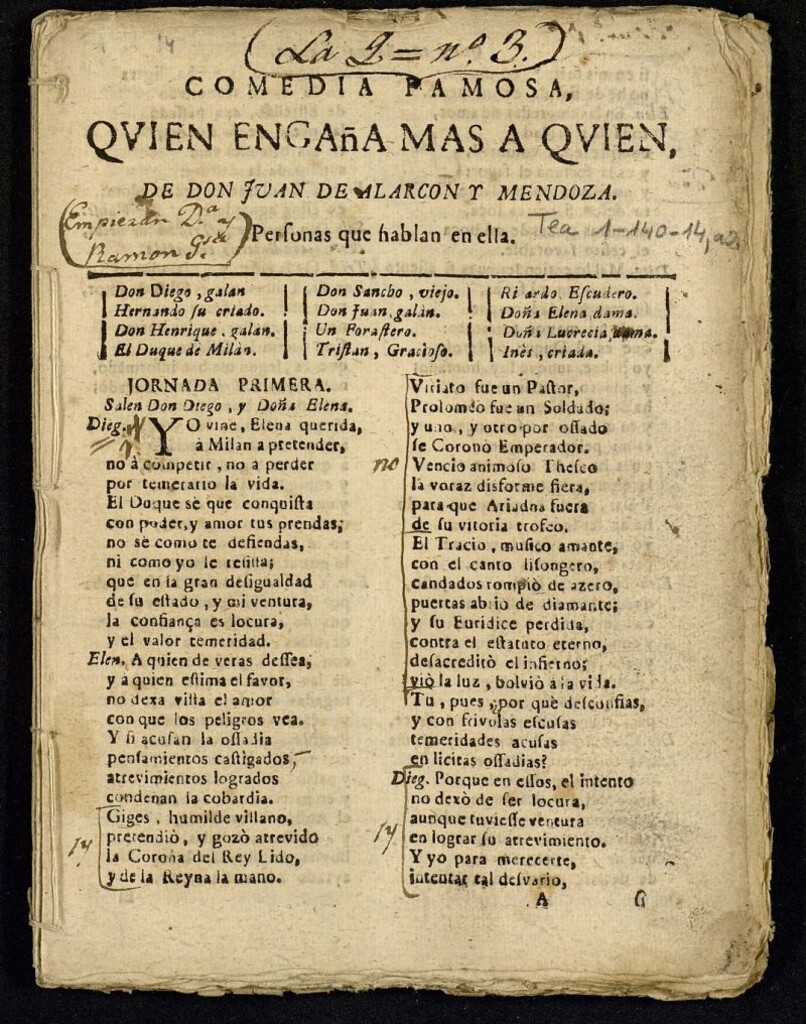 (La J.=nº 3.)
COMEDIA FAMOSA,
QVIEN ENGAñA MAS A QVIEN,
DE DON JVAN DE ALARCON Y MENDOZA.
(Empiezan D.ª y
Ramon G.ª)
Personas que hablan en ella.
Tea 1-140-14, a2
Don Diego, galan
Hernando su criado.
Don Henrique, galan.
El Duque de Milàn.
Don Sancho, viejo.
Don Juan, galàn.
Un Forastero.
Tristan, Gracioso.
Ri ardo Escudero.
Doña Elena dama.
Doña Lucrecia dama.
Inès, criada.
JORNADA PRIMERA.
Salen Don Diego, y Doña Elena.
Dieg. YO vine, Elena querida,
à Milan a pretender,
no à competir, no a perder
por temerario la vida.
El Duque sè que conquista
con poder, y amor tus prendas;
no sè como te defiendas,
ni como yo le resista;
que en la gran desigualdad
de su estado, y mi ventura,
la confiança es locura,
y el valor temeridad.
Elen. A quien de veras dessea,
y à quien estima el favor,
no dexa vista el amor
con que los peligros vea.
Y si acusan la ossadia
pensamientos castigados,
atrevimientos logrados
condenan la cobardia.
Giges, humilde villano,
pretendiò, y gozò atrevido
la Corona del Rey Lido,
y de la Reyna la mano.
Viriato fue un Pastor,
Prolomèo fue un Soldado;
y uno, y otro por ossado
se Coronò Emperador.
no
Vencio animoso Theseo
la voraz disforme fiera,
para que Ariadna fuera
de su vitoria trofeo.
El Tracio, musico amante,
con el canto lisongero,
candados rompiò de azero,
puertas abrio de diamante;
y su Euridice perdida,
contra el estatuto eterno,
desacreditò el infierno;
viò la luz, bolviò à la vida.
Tu, pues, por què desconfias,
y con frivolas escusas
temeridades acusas
en licitas ossadias?
Dieg. Porque en essos, el intento
no dexò de ser locura,
aunque tuviesse ventura
en lograr su atrevimiento.
Y yo para merecerte,
intentar tal desvario,
A G